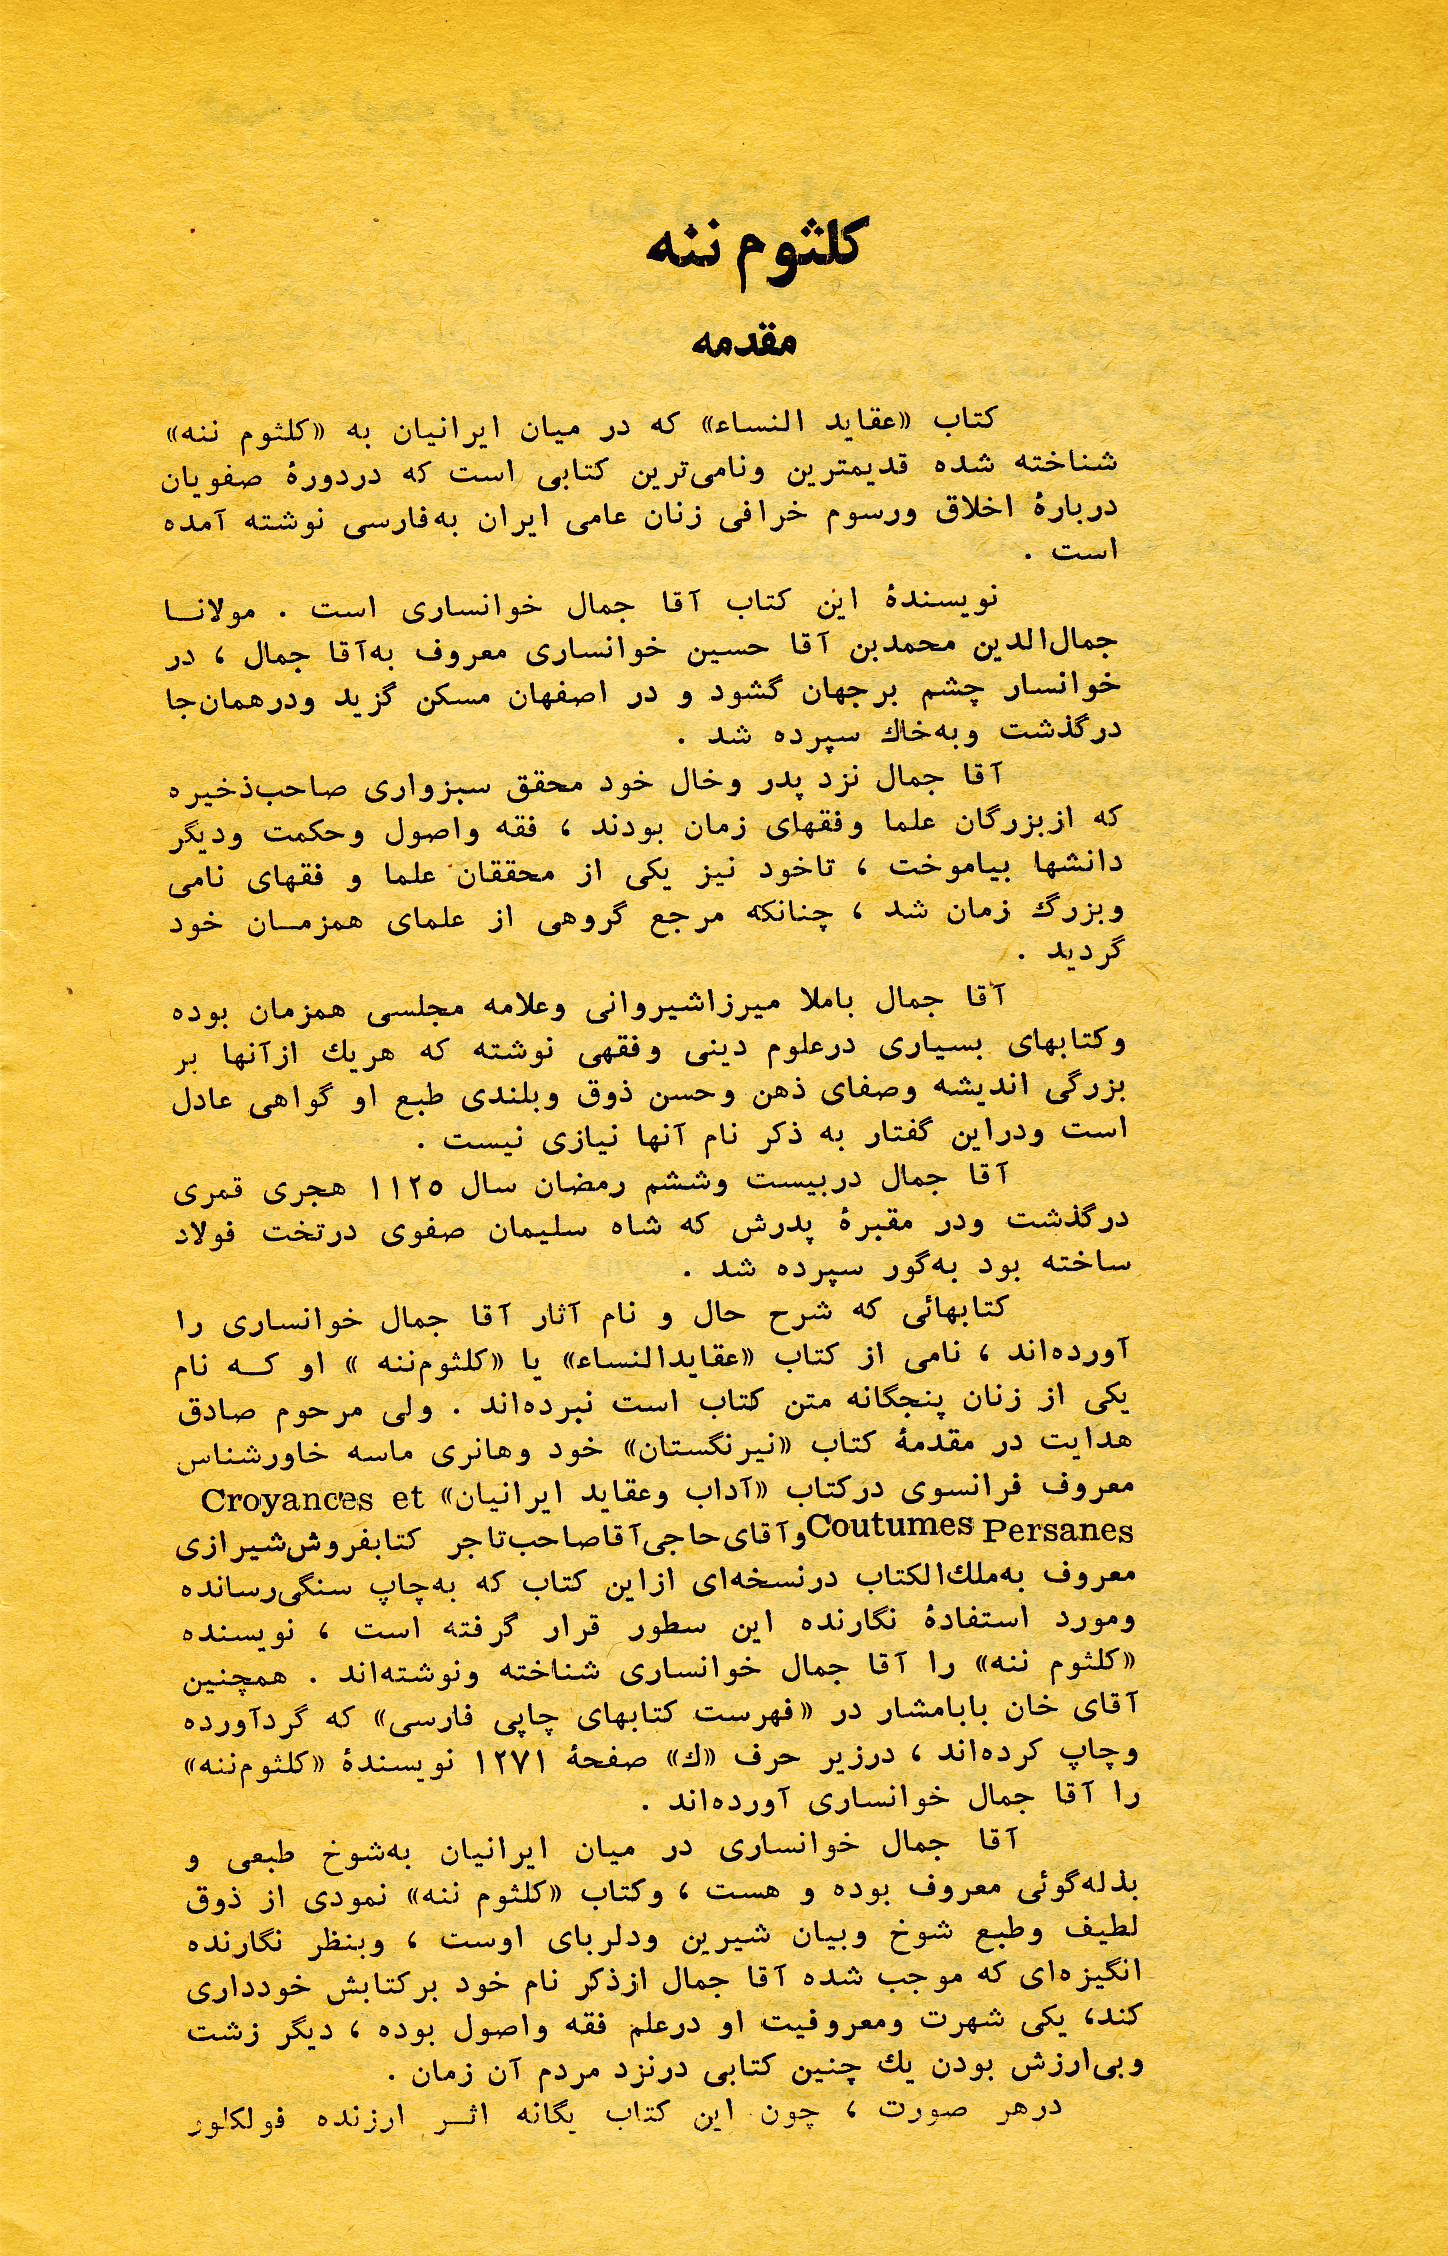 کلثوم ننه
مقدمه
کتاب «عقاید النساء» که در میان ایرانیان به «کلثوم ننه»
شناخته شده قدیمترین ونامی‌ترین کتابی است که دردورهٔ صفویان
دربارهٔ اخلاق ورسوم خرافی زنان عامی ایران به‌فارسی نوشته آمده
است .
نویسندهٔ این کتاب آقا جمال خوانساری است . مولانـا
جمال‌الدین محمدبن آقا حسین خوانساری معروف به‌آقا جمال ، در
خوانسار چشم برجهان گشود و در اصفهان مسکن گزید ودرهمان‌جا
درگذشت وبه‌خاك سپرده شد .
آقا جمال نزد پدر وخال خود محقق سبزواری صاحب‌ذخیره
که ازبزرگان علما وفقهای زمان بودند ، فقه واصول وحکمت ودیگر
دانشها بیاموخت ، تاخود نیز یکی از محققان علما و فقهای نامی
وبزرگ زمان شد ، چنانکه مرجع گروهی از علمای همزمـان خود
گردید .
آقا جمال باملا میرزاشیروانی وعلامه مجلسی همزمان بوده
وکتابهای بسیاری درعلوم دینی وفقهی نوشته که هریك ازآنها بر
بزرگی اندیشه وصفای ذهن وحسن ذوق وبلندی طبع او گواهی عادل
است ودراین گفتار به ذکر نام آنها نیازی نیست .
آقا جمال دربیست وششم رمضان سال ۱۱۲۵ هجری قمری
درگذشت ودر مقبرهٔ پدرش که شاه سلیمان صفوی درتخت فولاد
ساخته بود به‌گور سپرده شد .
کتابهائی که شرح حال و نام آثار آقا جمال خوانساری را
آورده‌اند ، نامی از کتاب «عقایدالنساء» یا «کلثوم‌ننه » او کـه نام
یکی از زنان پنجگانه متن کتاب است نبرده‌اند . ولی مرحوم صادق
هدایت در مقدمهٔ کتاب «نیرنگستان» خود وهانری ماسه خاورشناس
معروف فرانسوی درکتاب «آداب وعقاید ایرانیان» Croyances et
Coutumes Persanes وآقای‌حاجی‌آقاصاحب‌تاجر کتابفروش‌شیرازی
معروف به‌ملك‌الکتاب درنسخه‌ای ازاین کتاب که به‌چاپ سنگی‌رسانده
ومورد استفادهٔ نگارنده این سطور قرار گرفته است ، نویسنده
«کلثوم ننه» را آقا جمال خوانساری شناخته ونوشته‌اند . همچنین
آقای خان بابامشار در «فهرست کتابهای چاپی فارسی» که گردآورده
وچاپ کرده‌اند ، درزیر حرف «ك» صفحهٔ ۱۲۷۱ نویسندهٔ «کلثوم‌ننه»
را آقا جمال خوانساری آورده‌اند .
آقا جمال خوانساری در میان ایرانیان به‌شوخ طبعی و
بذله‌گوئی معروف بوده و هست ، وکتاب «کلثوم ننه» نمودی از ذوق
لطیف وطبع شوخ وبیان شیرین ودلربای اوست ، وبنظر نگارنده
انگیزه‌ای که موجب شده آقا جمال ازذکر نام خود برکتابش خودداری
کند، یکی شهرت ومعروفیت او درعلم فقه واصول بوده ، دیگر زشت
وبی‌ارزش بودن یك چنین کتابی درنزد مردم آن زمان .
درهر صورت ، چون این کتاب یگانه اثـر ارزنده فولکلور